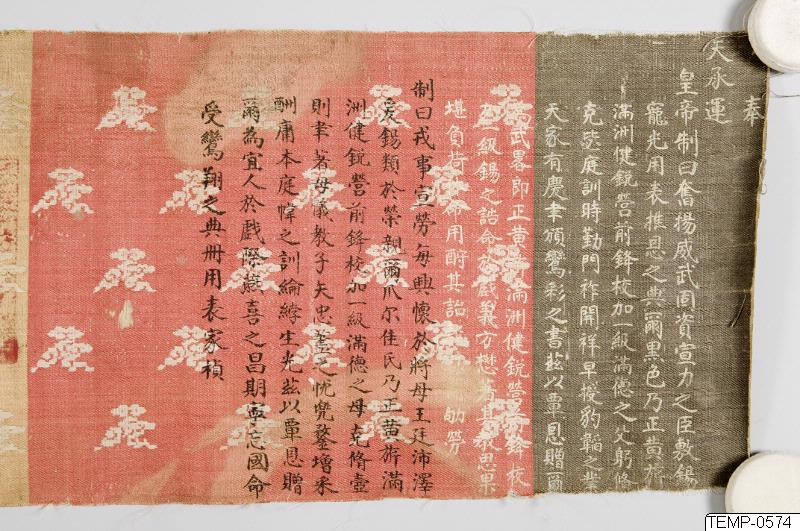 奉
天承運
皇帝制曰奮揚威武固資宣力之臣敷錫
寵光用表推恩之典爾黑色乃正黃旂
滿洲健銳營前鋒校加一級滿德之父躬修
克篤庭訓時勤門祚開祥早授豹韜之業
天家有慶聿頒鸞彩之書茲以覃恩贈爾
為武畧即正黃旂滿洲健銳營前鋒校
加一級錫之誥命於戲義方懋著其教思果
堪負荷命用酹其詒 劬勞
制曰戎事宣勞每興懷於將母王廷沛澤
爰錫類於榮親爾爪尔佳氏乃正黃旂滿
洲健銳營前鋒校加一級滿德之母克脩壼
則聿著母儀教子矢忠藎之忱兜鍪增采
酬庸本庭幃之訓綸綍生光茲以覃恩贈
爾為宜人於戲際燕喜之昌期寧忘國命
受鸞翔之典冊用表家禎
TEMP-0574